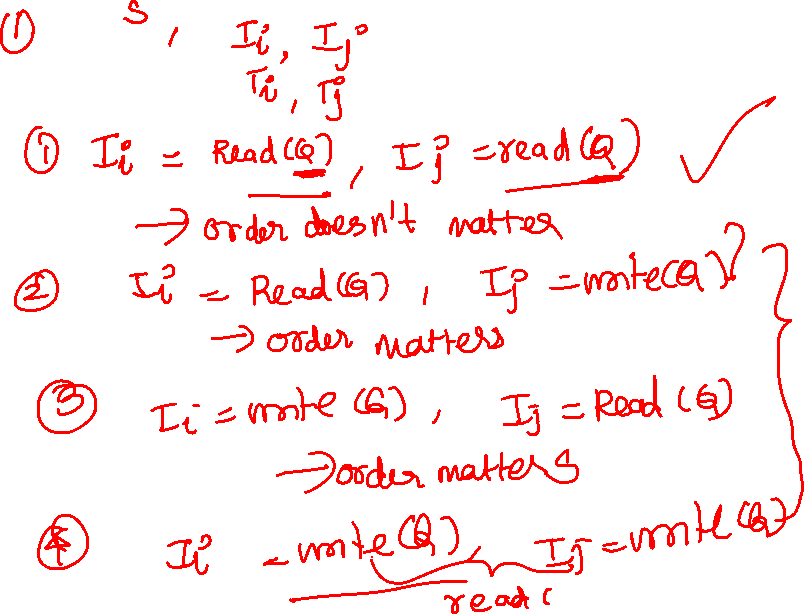 ① S, Ii, Ij
Ti, Tj
① Ii = Read(Q), Ij = read(Q)
→ order doesn't matter
② Ii = Read(Q), Ij = write(Q)
→ order matters
③ Ii = write(Q), Ij = Read(Q)
→ order matters
④ Ii = write(Q), Ij = write(Q)
read(